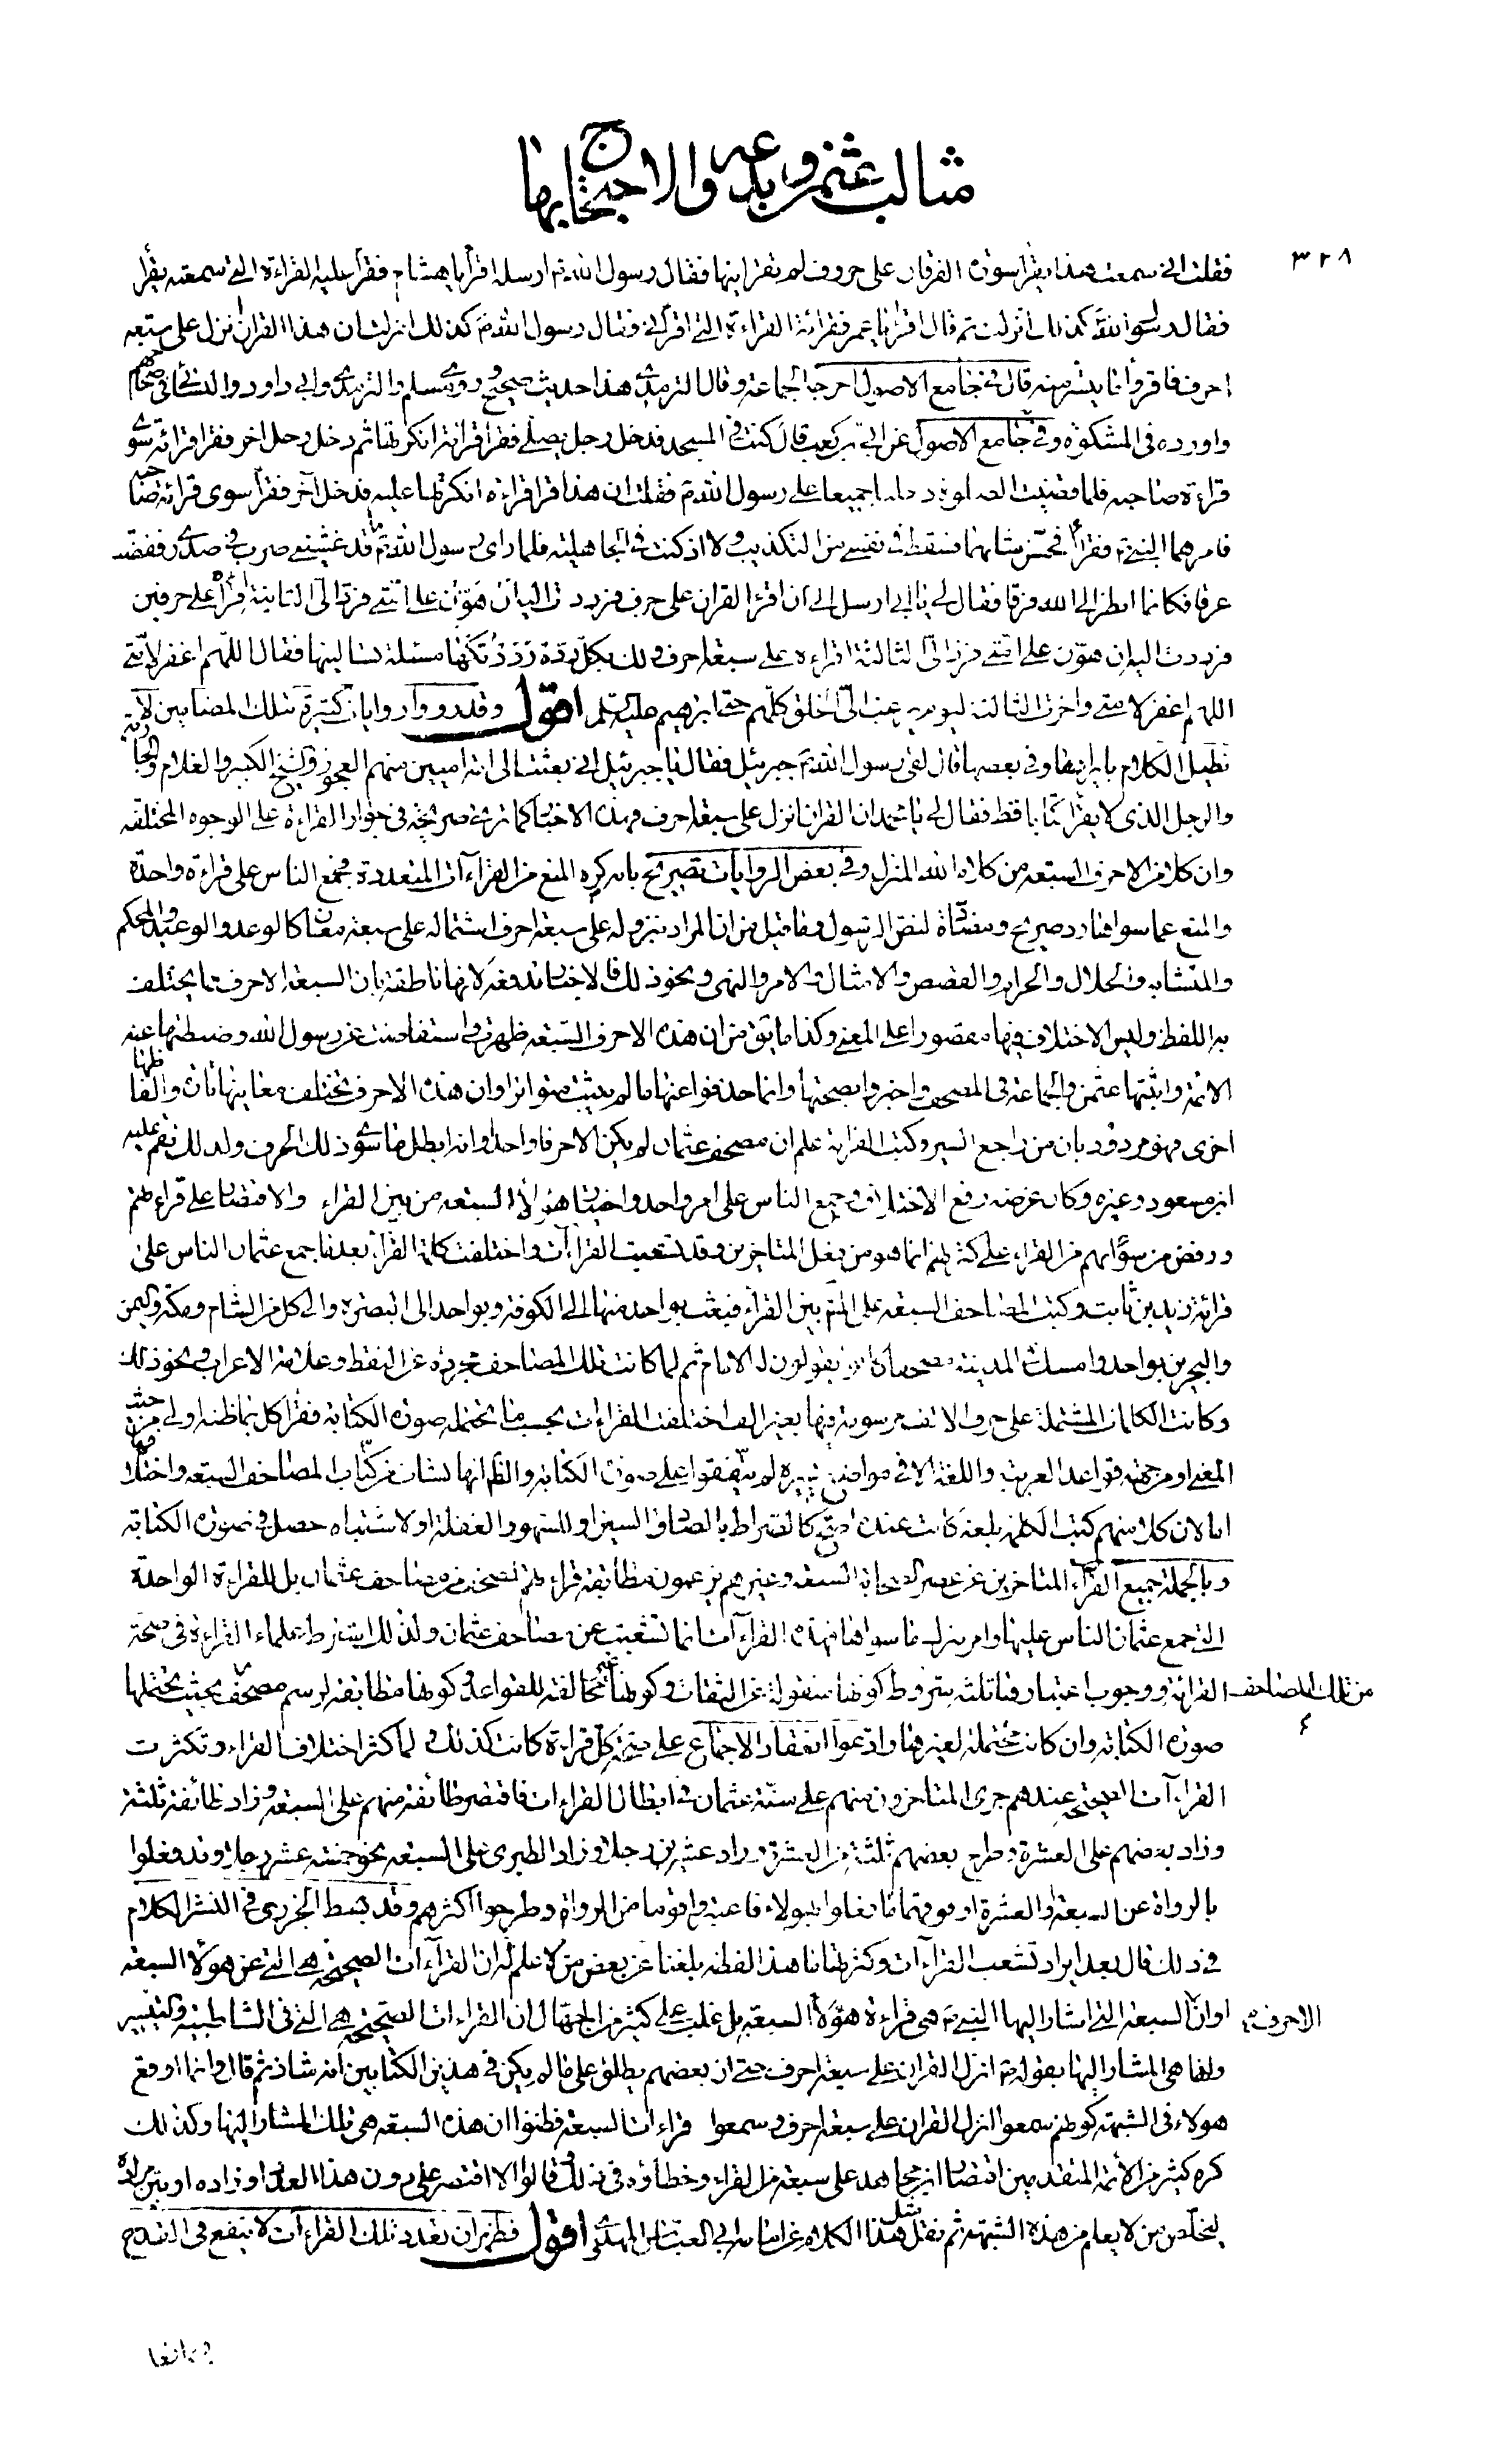 مثالب عثمن وبدعه والاحتجاج بها
٣٢٨
فقلت اني سمعت هذا يقرا سورة الفرقان على حروف لم تقرانيها فقال رسول الله ص ارسله اقرا يا هشام فقرا عليه القراءة التي سمعته يقرا
فقال رسول الله ص كذلك انزلت ثم قال اقرا يا عمر فقرات القراءة التي اقراني فقال رسول الله ص كذلك انزلت ان هذا القران نزل على سبعة
احرف فاقروا ما تيسر منه قال في جامع الاصول اخرجه الجماعة وقال الترمذي هذا حديث صحيح وروى مسلم والترمذي وابي داود والنسائي في صحاحهم
واورده في المشكوة وفي جامع الاصول عن ابي بن كعب قال كنت في المسجد فدخل رجل يصلي فقرا قراءة انكرتها ثم دخل رجل اخر فقرا قراءة سوى
قراءة صاحبه فلما قضيت الصلوة دخلنا جميعا على رسول الله ص فقلت ان هذا قرا قراءة انكرتها عليه فدخل آخر فقرا سوى قراءة صاحبه
فامرهما النبي ص فقرآ فحسن شانهما فسقط في نفسي من التكذيب ولا اذ كنت في الجاهلية فلما راى رسول الله ص ما قد غشيني ضرب في صدري ففضت
عرقا فكانما انظر الى الله فرقا فقال لي يا ابي ارسل الي ان اقرا القران على حرف فرددت اليه ان هون على امتي فرد الي الثانية اقراه على حرفين
فرددت اليه ان هون على امتي فرد الي الثالثة اقراه على سبعة احرف ولك بكل ردة رددتكها مسئلة تسالنيها فقال اللهم اغفر لامتي
اللهم اغفر لامتي واخرت الثالثة ليوم يرغب الي الخلق كلهم حتى ابرهيم عليه السلم اقول وقد رووا روايات كثيرة بتلك المضامين لا
نطيل الكلام بايرادها وفي بعضها قال لقي رسول الله ص جبرئيل فقال يا جبرئيل اني بعثت الى امة اميين منهم العجوز والشيخ الكبير والغلام والجارية
والرجل الذي لا يقرا كتابا قط فقال لي يا محمد ان القران انزل على سبعة احرف فهذه الاخبار كما ترى صريحة في جواز القراءة على الوجوه المختلفة
وان كلا من الاحرف السبعة من كلام الله المنزل وفي بعض الروايات تصريح بانه كره المنع من القراآت المتعددة فجمع الناس على قراءة واحدة
والمنع عما سواها رد صريح ومضادة لنص الرسول وما قيل من ان المراد بنزوله على سبعة احرف اشتماله على سبعة معان كالوعد والوعيد والمحكم
والمتشابه والحلال والحرام والقصص والامثال والامر والنهي ونحو ذلك فالاخبار تدفعه لانها ناطقة بان السبعة الاحرف مما يختلف
به اللفظ وليس الاختلاف فيها مقصورا على المعنى وكذا ما يتوهم من ان هذه الاحرف السبعة ظهرت واستفاضت عن رسول الله وضبطتها عنه
الائمة واثبتها عثمن والجماعة في المصحف واخبروا بصحتها وانما حذفوا عنها ما لم يثبت متواترا وان هذه الاحرف تختلف معانيها تارة والفاظها
اخرى فهو مردود بان من راجع السير وكتب القراءة علم ان مصحف عثمان لم يكن الا حرفا واحدا وانه ابطل ما سوى ذلك الحرف ولذلك نقم عليه
ابن مسعود وغيره وكان غرضه رفع الاختلاف وجمع الناس على امر واحد واختيار هؤلاء السبعة من بين القراء والاقتصار على قراءتهم
ورفض من سواهم من القراء على كثرتهم انما هو من فعل المتاخرين وقد تشعبت القراآت واختلفت كلمة القراء بعد ما جمع عثمان الناس على
قراءة زيد بن ثابت وكتب المصاحف السبعة على المتم بين القراء فبعث بواحد منها الى الكوفة وبواحد الى البصرة والى كل من الشام ومكة واليمن
والبحرين بواحد وامسك في المدينة مصحفا كانوا يقولون له الامام ثم لما كانت تلك المصاحف مجردة عن النقط وعلامة الاعراب ونحو ذلك
وكانت الكلمات المشتملة على حروف الالف مرسومة فيها بغير الف اختلفت القراءات بحسب ما تحتمله صورة الكتابة فقرا كل بما ظنه اولى من حيث
المعنى او من جهة قواعد العربية واللغة الا في مواضع يسيرة لم يتفقوا على صورة الكتابة والظاهر انها نشات من كتاب المصاحف السبعة واختلافها
اما لان كلا منهم كتب الكلمة بلغة كانت عنده اصح كالصراط بالصاد والسين او للسهو والغفلة او لاشتباه حصل في صورة الكتابة
وبالجملة جميع القراء المتاخرين عن عصر الصحابة السبعة وغيرهم يزعمون مطابقة قراءتهم لمصحف من مصاحف عثمان بل للقراءة الواحدة
التي جمع عثمان الناس عليها وامر بترك ما سواها فهذه القراآت انما تشعبت عن مصاحف عثمان ولذلك اشترط علماء القراءة في صحة
القراءة ووجوب اعتبارها ثلثة شروط كونها منقولة عن الثقات وكونها غير مخالفة للقواعد وكونها مطابقة لرسم مصحف بحيث تحتملها
من تلك المصاحف
صورة الكتابة وان كانت محتملة لغيرها وادعوا انعقاد الاجماع على صحة كل قراءة كانت كذلك لما كثر اختلاف القراء وتكثرت
القراءات الصحيحة عندهم جرى المتاخرون منهم على سنة عثمان في ابطال القراءات فاقتصر طائفة منهم على السبعة وزاد طائفة ثلثة
وزاد بعضهم على العشرة وطرح بعضهم ثلثة من العشرة وزاد عشرين رجلا وزاد الطبري على السبعة نحو خمسة عشر رجلا وقد فعلوا
بالرواة عن السبعة والعشرة او ما فوقهما ما فعلوا بهولاء فاعتبروا قوما من الرواة وطرحوا اكثرهم وقد بسط الجزري في النشر الكلام
في ذلك قال بعد ايراد تشعب القراآت وكثرتها ما هذا لفظه بلغنا عن بعض من لا علم له ان القراآت الصحيحة هي التي عن هؤلاء السبعة
او ان السبعة التي اشار اليها النبي ص هي قراءة هؤلاء السبعة بل غلب على كثير من الجهال ان القراءات الصحيحة هي التي في الشاطبية والتيسير
الاحرف
وانها هي المشار اليها بقوله ص انزل القران على سبعة احرف حتى ان بعضهم يطلق على ما لم يكن في هذين الكتابين انه شاذ ثم قال وانما اوقع
هولاء في الشبهة كونهم سمعوا انزل القران على سبعة احرف وسمعوا قراءات السبعة فظنوا ان هذه السبعة هي تلك المشار اليها وكذلك
كره كثير من الائمة المتقدمين اقتصار ابن مجاهد على سبعة من القراء وخطاؤه في ذلك وقالوا الا اقتصر على دون هذا العدد او زاده او بين مراده
ليخلص من لا يعلم من هذه الشبهة ثم نقل مثل هذا الكلام عن امامه ابي العباس المهدوي اقول فظهر ان تعدد تلك القراءات لا ينفع في القدح